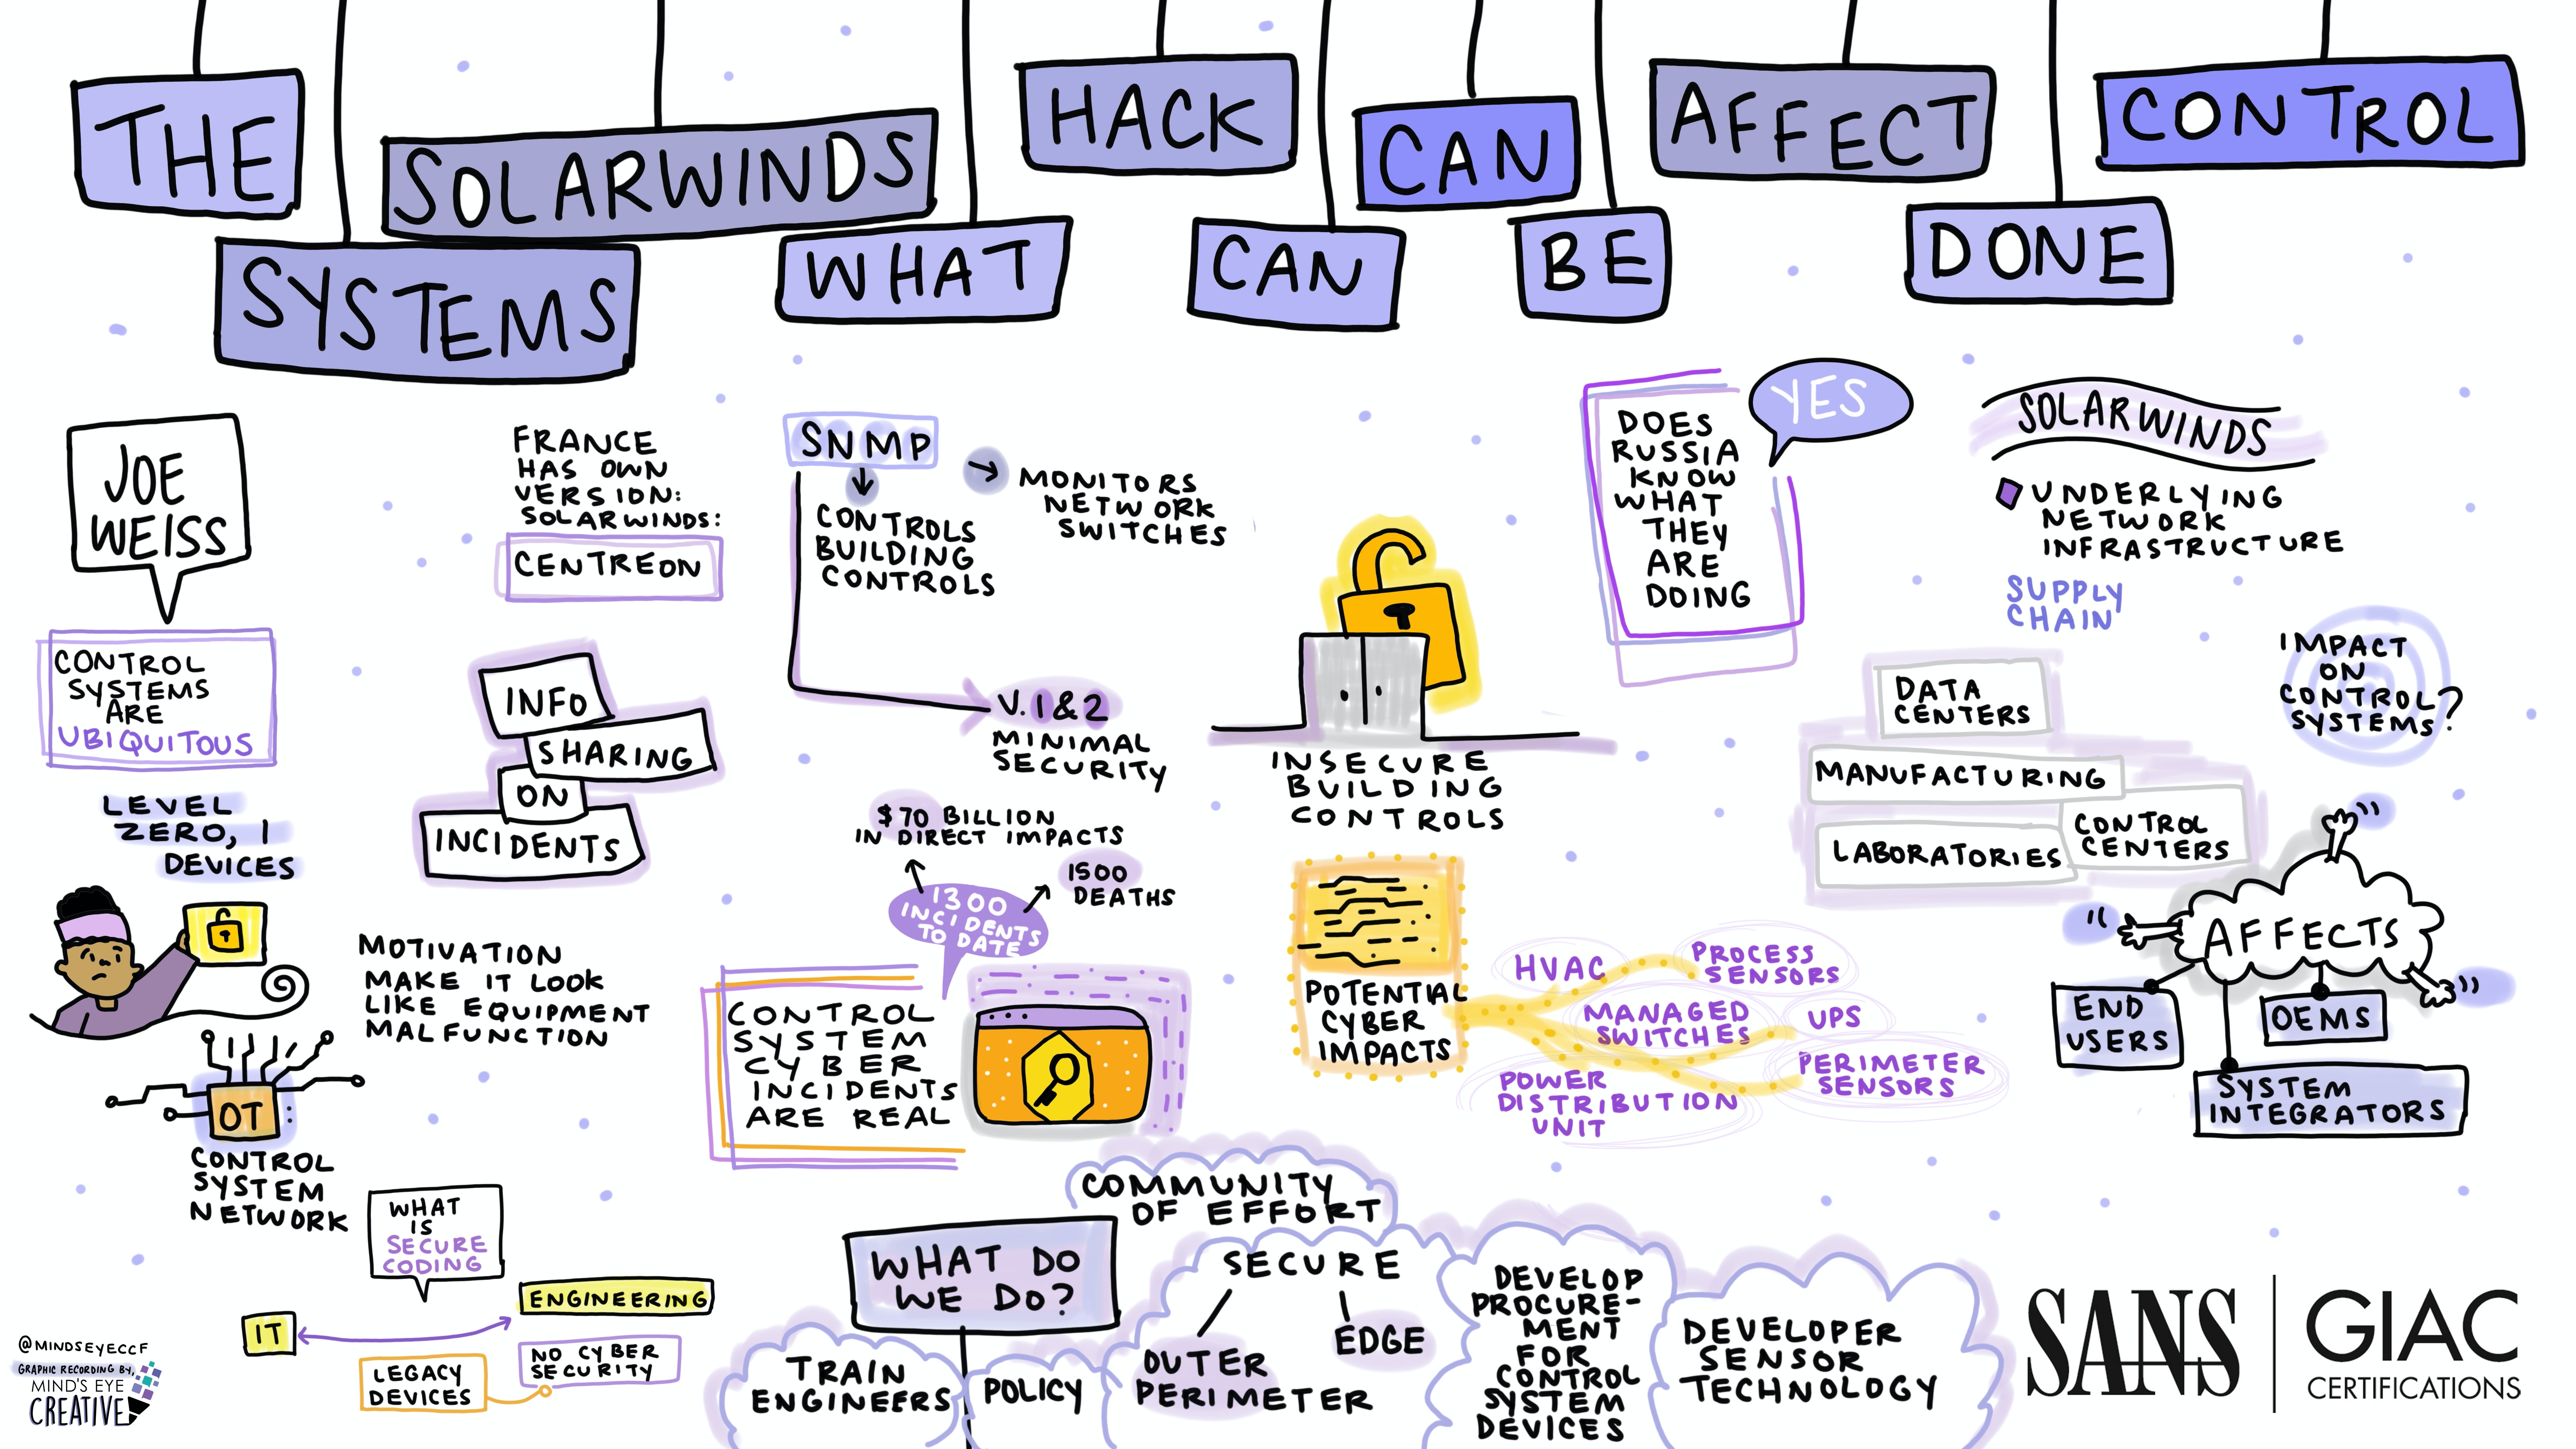 THE SOLARWINDS HACK CAN AFFECT CONTROL
SYSTEMS WHAT CAN BE DONE
JOE
WEISS
CONTROL
SYSTEMS
ARE
UBIQUITOUS
LEVEL
ZERO, 1
DEVICES
FRANCE
HAS OWN
VERSION:
SOLARWINDS:
CENTREON
INFO
SHARING
ON
INCIDENTS
MOTIVATION
MAKE IT LOOK
LIKE EQUIPMENT
MALFUNCTION
OT:
CONTROL
SYSTEM
NETWORK
WHAT
IS
SECURE
CODING
IT
ENGINEERING
LEGACY
DEVICES
NO CYBER
SECURITY
SNMP
CONTROLS
BUILDING
CONTROLS
MONITORS
NETWORK
SWITCHES
V. 1&2
MINIMAL
SECURITY
$70 BILLION
IN DIRECT IMPACTS
1500
DEATHS
1300
INCIDENTS
TO DATE
CONTROL
SYSTEM
CYBER
INCIDENTS
ARE REAL
INSECURE
BUILDING
CONTROLS
POTENTIAL
CYBER
IMPACTS
HVAC
PROCESS
SENSORS
MANAGED
SWITCHES
UPS
POWER
DISTRIBUTION
UNIT
PERIMETER
SENSORS
DOES
RUSSIA
KNOW
WHAT
THEY
ARE
DOING
YES
SOLARWINDS
UNDERLYING
NETWORK
INFRASTRUCTURE
SUPPLY
CHAIN
DATA
CENTERS
MANUFACTURING
LABORATORIES
CONTROL
CENTERS
IMPACT
ON
CONTROL
SYSTEMS?
AFFECTS
END
USERS
OEMS
SYSTEM
INTEGRATORS
WHAT DO
WE DO?
TRAIN
ENGINEERS
POLICY
COMMUNITY
OF EFFORT
SECURE
OUTER
PERIMETER
EDGE
DEVELOP
PROCURE-
MENT
FOR
CONTROL
SYSTEM
DEVICES
DEVELOPER
SENSOR
TECHNOLOGY
@MINDSEYECCF
GRAPHIC RECORDING BY,
MIND'S EYE
CREATIVE
SANS
GIAC
CERTIFICATIONS